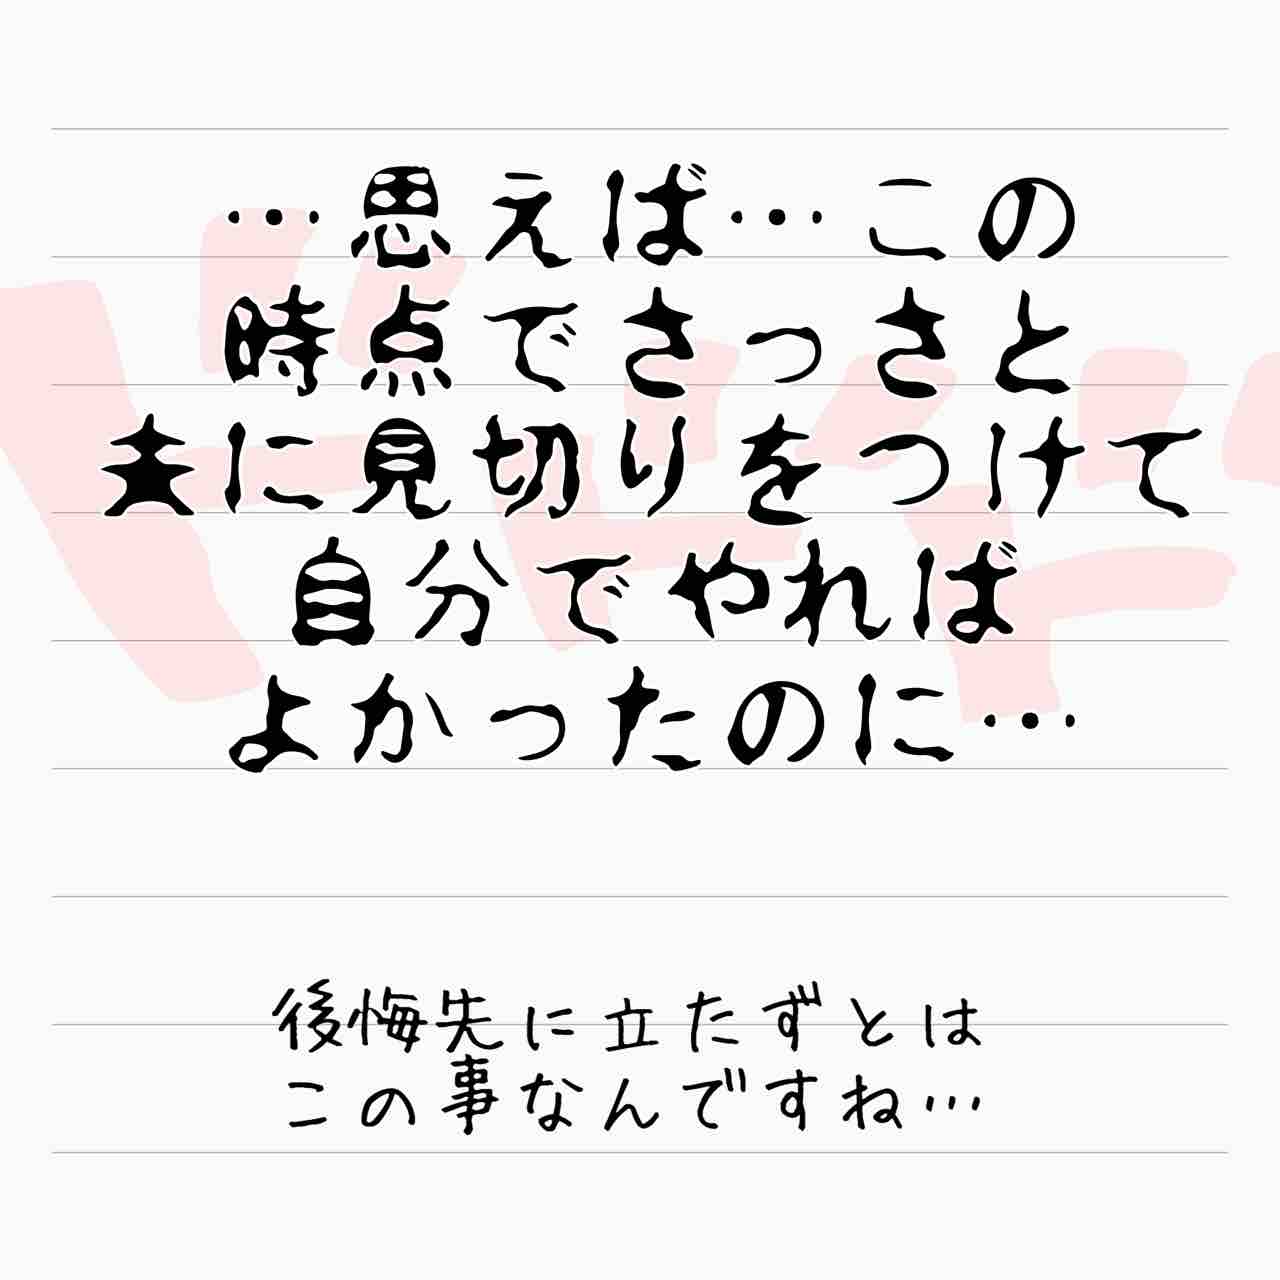 …思えば…この
時点でさっさと
夫に見切りをつけて
自分でやれば
よかったのに…
後悔先に立たずとは
この事なんですね…